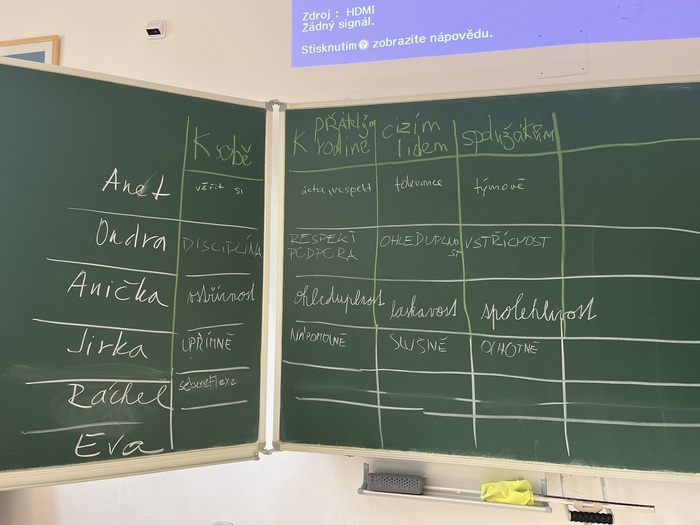 Zdroj : HDMI
Žádný signál.
Stisknutím ? zobrazíte nápovědu.
K sobě
K přátelům rodině
cizím lidem
spolužákům
Anet
věřit si
úcta, respekt
tolerance
týmově
Ondra
DISCIPLÍNA
RESPEKT PODPORA
OHLEDUPLNOST
VSTŘÍCNOST
Anička
ohleduplnost
laskavost
spolehlivost
Jirka
UPŘÍMNĚ
NÁPOMOCNĚ
SLUŠNĚ
OCHOTNĚ
Ráchel
sebereflexe
Eva